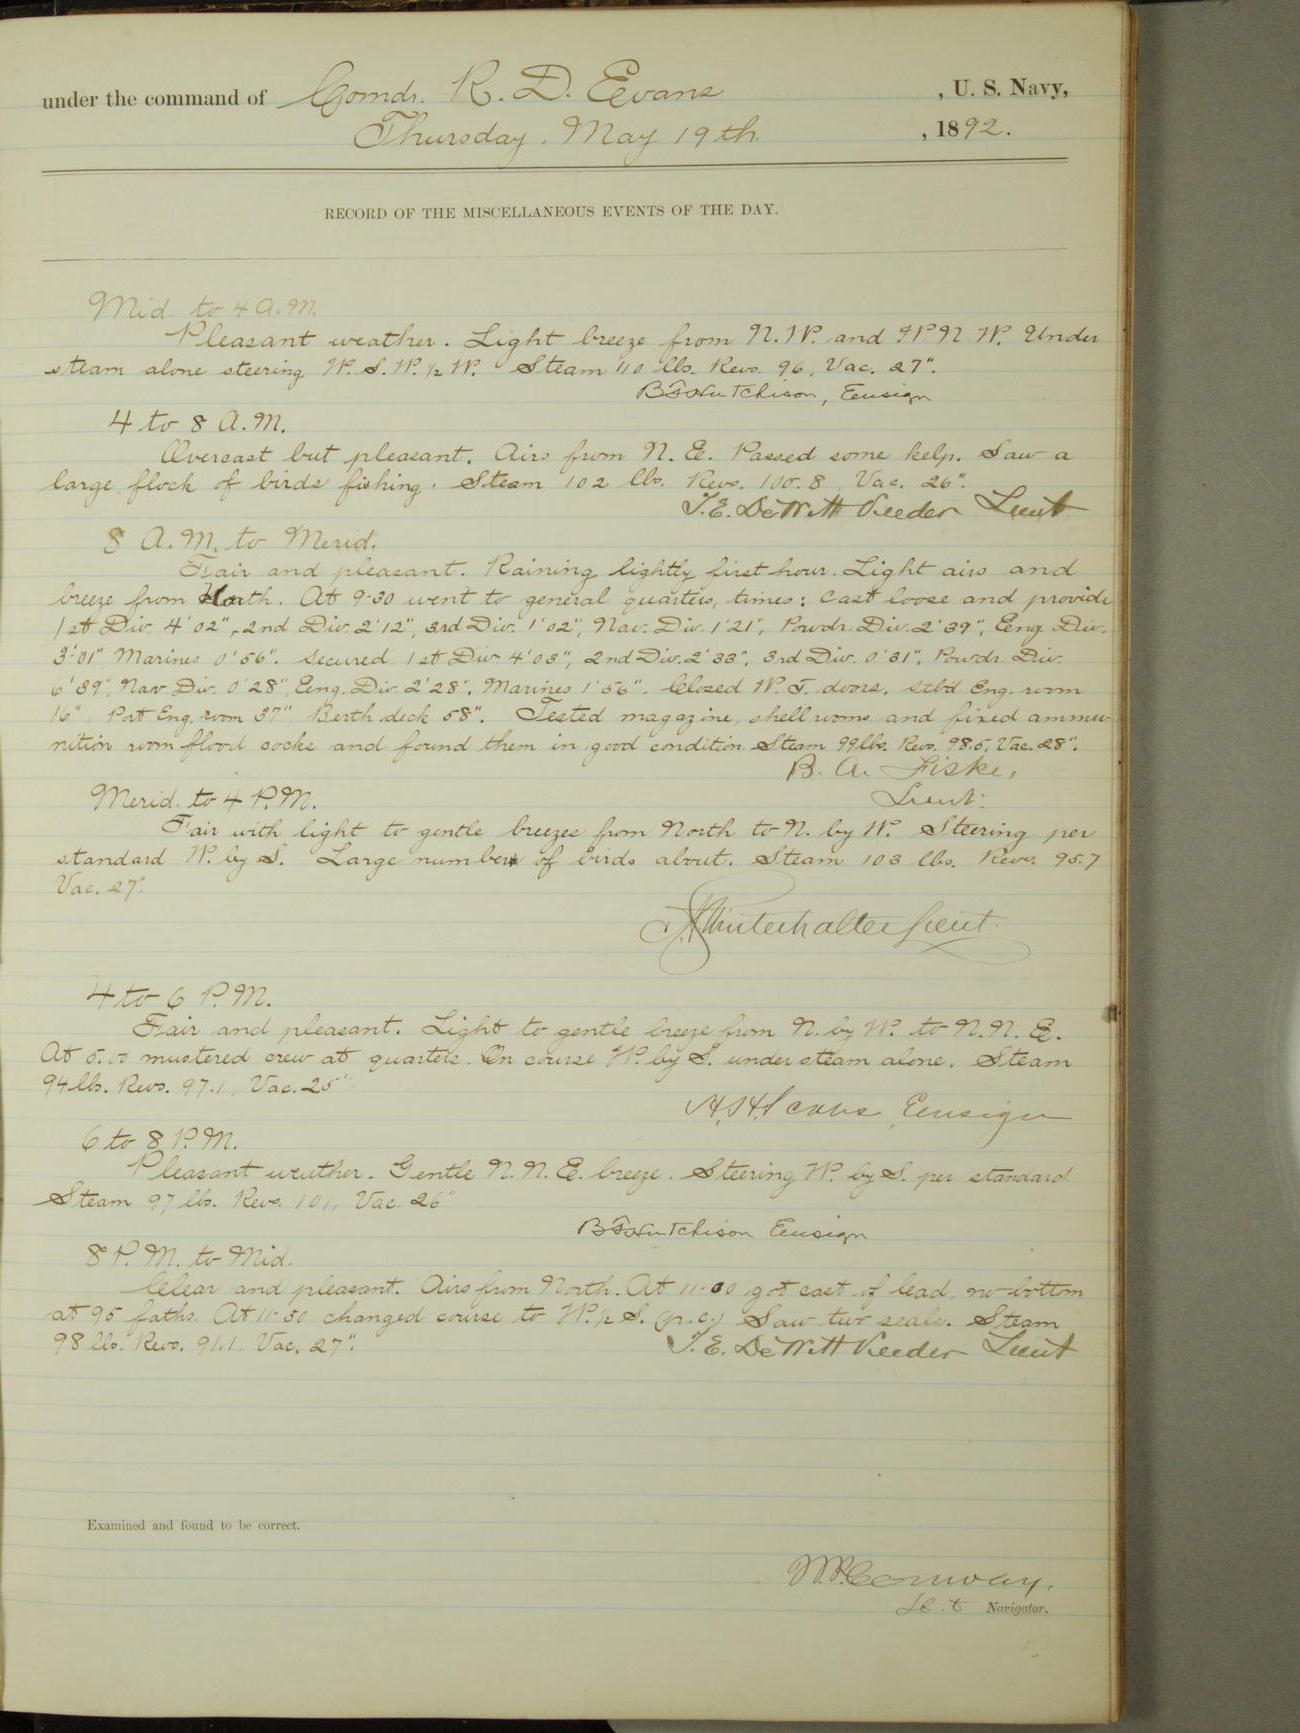 under the command of Comdr. R. D. Evans , U. S. Navy,
Thursday, May 19th. , 1892.
RECORD OF THE MISCELLANEOUS EVENTS OF THE DAY.
Mid. to 4 A.M.
Pleasant weather. Light breeze from N.W. and W.N.W. Under
steam alone steering W.S.W. 1/2 W. Steam 110 lbs. Revs. 96, Vac. 27".
B F Hutchison, Ensign
4 to 8 A.M.
Overcast but pleasant. Airs from N.E. Passed some kelp. Saw a
large flock of birds fishing. Steam 102 lbs. Revs. 100.8, Vac. 26".
T.E. DeWitt Veeder Lieut
8 A.M. to Merid.
Fair and pleasant. Raining lightly first hour. Light airs and
breeze from North. At 9-30 went to general quarters, times: Cast loose and provide
1st Div. 4'02", 2nd Div. 2'12", 3rd Div. 1'02", Nav. Div. 1'21", Powdr. Div. 2'39", Eng. Div.
3'-01", Marines 0'56". Secured 1st Div 4'03", 2nd Div. 2'33", 3rd Div. 0'31", Powdr. Div.
6'39", Nav. Div. 0'28", Eng. Div. 2'28", Marines 1'56". Closed W.T. doors, stbd Eng. room
16", Port Eng. room 37", Berth deck 58". Tested magazine, shell rooms and fixed ammu-
nition room flood cocks and found them in good condition. Steam 99 lbs. Revs. 98.5, Vac. 28".
B. A. Fiske,
Merid. to 4 P.M. Lieut.
Fair with light to gentle breezes from North to N. by W. Steering per
standard W. by S. Large numbers of birds about. Steam 103 lbs. Revs. 95.7
Vac. 27".
Winterhalter Lieut.
4 to 6 P.M.
Fair and pleasant. Light to gentle breeze from N. by W. to N.N.E.
At 5.00 mustered crew at quarters. On course W. by S. under steam alone. Steam
94 lbs. Revs. 97.1, Vac. 25".
Ensign
6 to 8 P.M.
Pleasant weather. Gentle N.N.E. breeze. Steering W. by S. per standard.
Steam 97 lbs. Revs. 101, Vac. 26"
B F Hutchison Ensign
8 P.M. to Mid.
Clear and pleasant. Airs from North. At 11-00 got cast of lead, no bottom
at 95 faths. At 11-30 changed course to W. 1/2 S. (p.c.) Saw two seals. Steam
98 lbs. Revs. 91.1, Vac. 27".
T.E. DeWitt Veeder Lieut
Examined and found to be correct.
W.P. Conway,
Navigator.